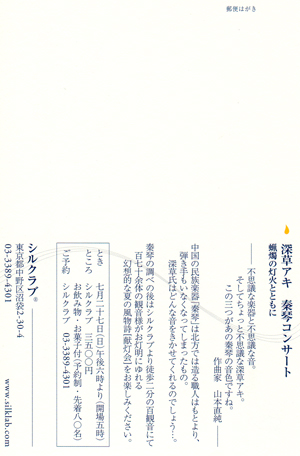 郵便はがき
深草アキ　秦琴コンサート
蝋燭の灯火とともに
――不思議な楽器と不思議な音。
そしてちょっと不思議な深草アキ。
この三つがあの秦琴の音色ですね。
作曲家　山本直純――
中国の民族楽器「秦琴」は北方では造る職人はもとより、
弾き手もいなくなってしまったもの。
深草氏はどんな音をきかせてくれるのでしょう…。
秦琴の調べの後はシルクラブより徒歩二分の百観音にて
百七十余体の観音様がお灯明にゆれる
幻想的な夏の風物詩「献灯会」をお楽しみください。
とき　七月二十七日（日）午後六時より（開場五時）
ところ　シルクラブ　三五〇〇円
お飲み物・お菓子付（予約制・先着八〇名）
ご予約　シルクラブ　03-3389-4301
シルクラブ®
東京都中野区沼袋2-30-4
03-3389-4301
www.silklab.com